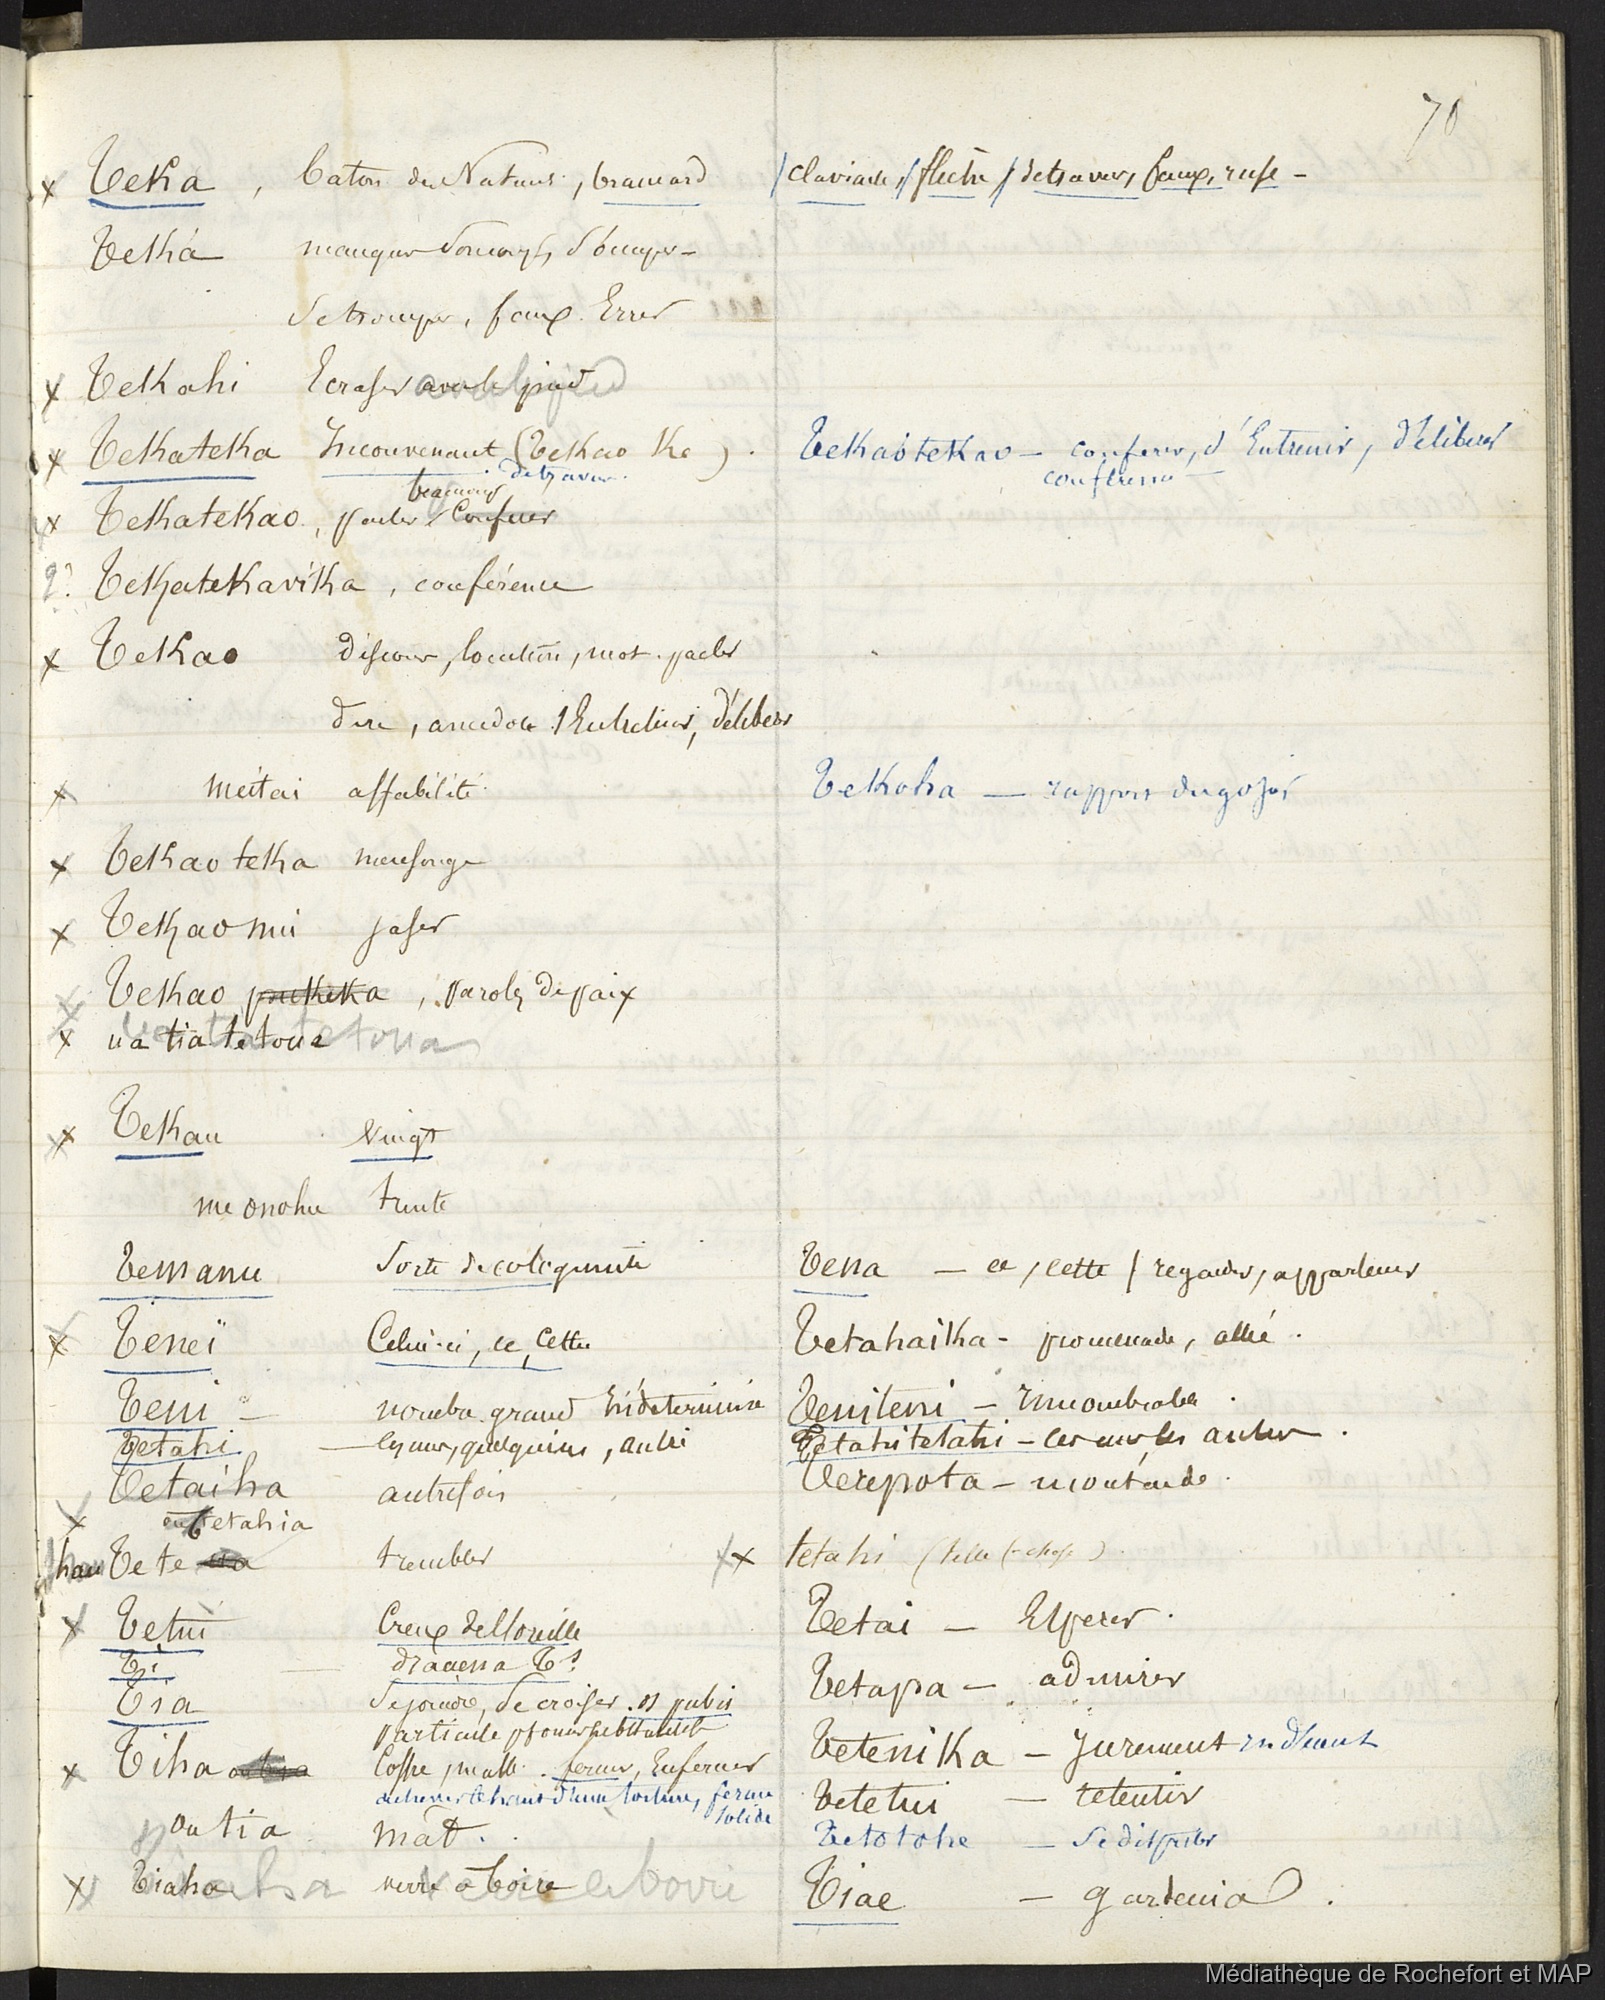 70
Teka , baton du Nature, brancard
/ claviaule, / flêche / detraver, faux, ruse -
Teká manquer
Se tromper, faux. Errer
Tekahi Ecraser avec le pied
Tekateka Inconvenant (Tekao ke) .
detraver.
Tekaótekao - conferer, s'Entrenir, déliberer
conference -
Tekatekao, parler, Conferer
2? Tekatekavika, conférence
Tekao discour, locution, mot. parler
dire, anecdote / Entretenir, Déliberer
meitai affabilité
Tekoha — rapport
Tekao teka mensonge
Tekao nui jaser
Tekao pukeka , parole de paix
ua tia te toua
Tekau Vingt
me onohuu trente
Temanu Sorte de coloquinte
Tena — ce, cette / regarder, appartenir
Teneï Celui-ci, ce, Cette
Tetahaika - promenade, allée .
Teni — nombre grand indeterminé
Teniteni - Innombrable .
Tetahi — les uns, quelqu'uns, autre
Tetahitetahi - les uns les autres .
Tetaiha autrefois
Terepota - moutarde .
ou Tetahia
hau Te te trembler
tetahi (telle (- chose)
Tetui Creux de l'Oreille
Tetai — Esperer .
Ti — dracena T.s
Tetapa — admirer
Tia Se joindre, Se croiser . os pubis
particule pronom substantif
Tetenika — Jurement
Tiha Coffre, malle . fermer, Enfermer
achever le haut d'une toiture, ferme
solide
Tetetui — retentir
pou tia mât .
Tetotohe — Se disputer
Tiaha verre à boire
Tiae — gardenia .
Médiathèque de Rochefort et MAP